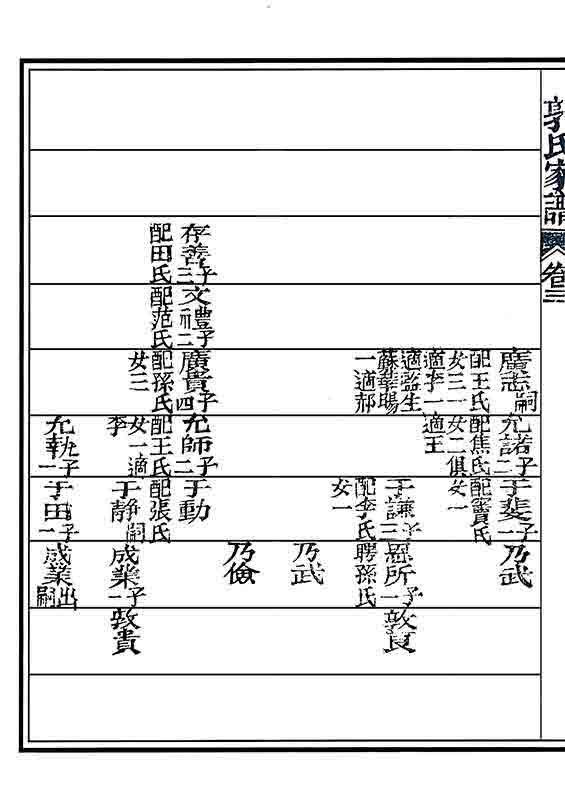 郭氏家譜 卷三
廣志嗣
配王氏
女三一
適李一
適監生
蘇華暘
一適郝
允諾子二
配焦氏
女二俱
適王
于斐子一
配竇氏
女一
乃武
于謙子三
配李氏
女一
恩所子一
聘孫氏
敦良
乃武
乃儉
存善子三
配田氏
文禮子二
配范氏
廣貴子四
配孫氏
女三
允師子二
配王氏
女一適
李
于動
配張氏
于静嗣
成業子一
敦貴
允執子一
于田子一
成業出嗣